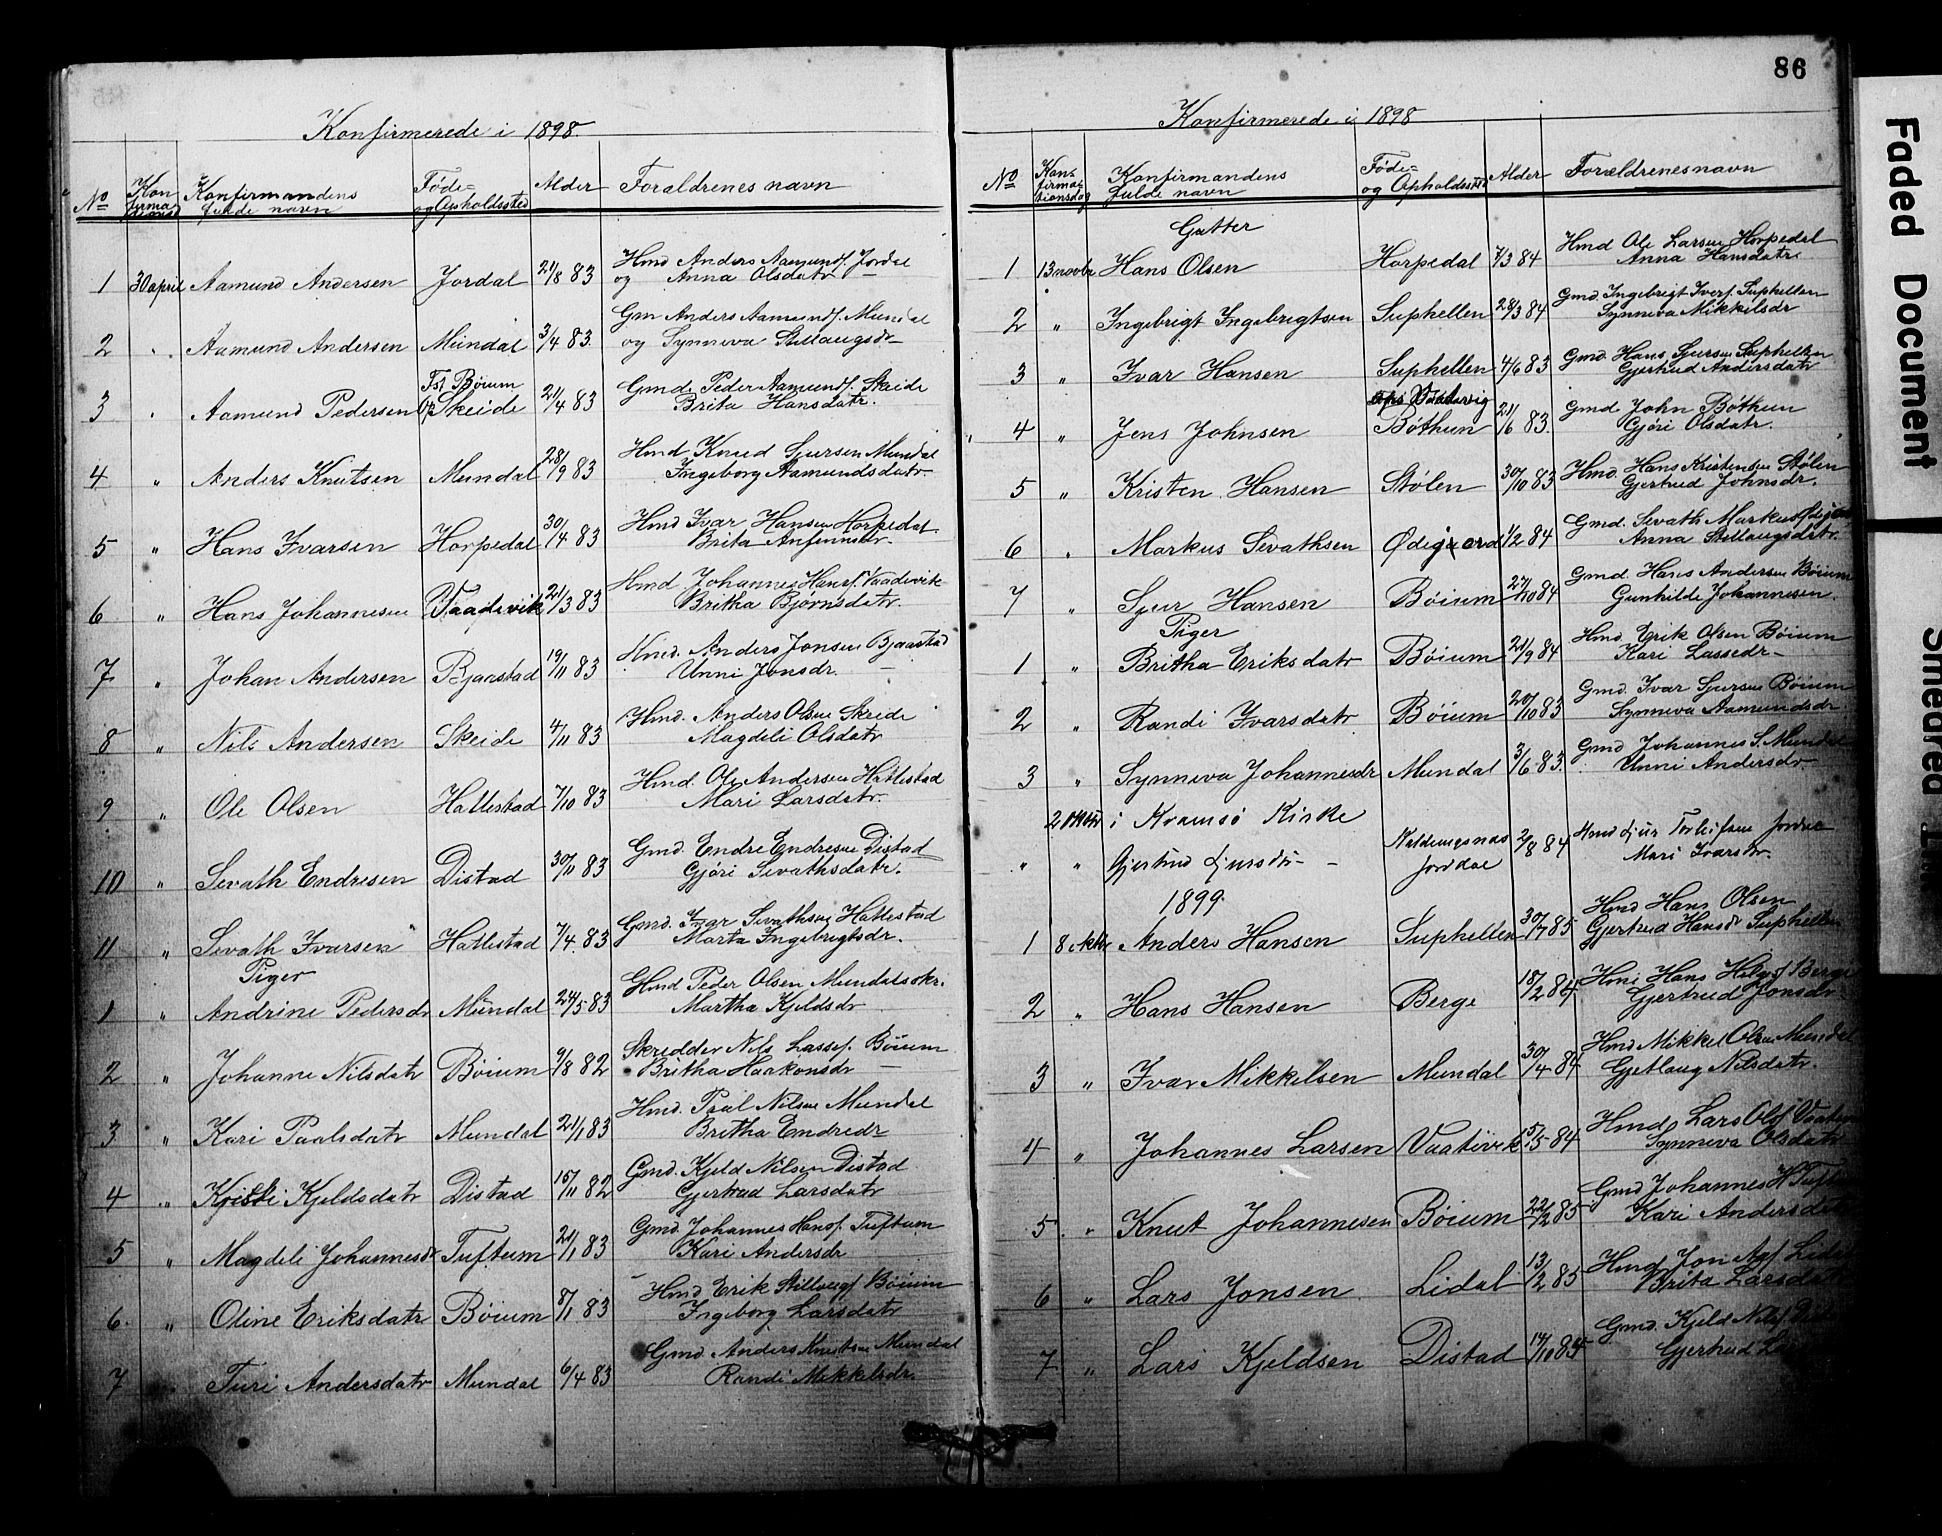 Konfirmerede i 1898.
No Konfirmationsd Konfirmandens fulde navn Føde- og Opholdssted Alder Foraldrenes navn
1 30 april Aamund Andersen Jordal 21/8 83 Hmd Anders Aamundsf. Jordal
og Anna Olsdatr
2 " Aamund Andersen Mundal 3/4 83. Gm Anders Aamundsf. Mundal
og Synneva Stillaugsdr
3 " Aamund Pedersen Fst Bøium
Skeide 21/4 83 Gmd. Peder Aamundsf. Skeide
Brita Hansdatr.
4 " Anders Knutsen Mundal 28/9 83 Hmd Knud Sjursen Mundal
Ingeborg Aamundsdatr
5 " Hans Ivarsen Horpedal 30/4 83 Hmd Ivar Hansen Horpedal
Brita Anfinnsdr.
6 " Hans Johannesen Vaadevik 21/3 83 Hmd. Johannes Hansf. Vaadevik
Britha Bjørnsdatr.
7 " Johan Andersen Bjaastad 19/11 83 Anders Jonsen Bjaastad
Unni Jonsdr.
8 " Nils Andersen Skeide 4/11 83 Hmd. Anders Olsen Skeide
Magdeli Olsdatr
9 " Ole Olsen Hatlestad 7/10 83 Hmd. Ole Andersen Hatlestad
Mari Larsdatr.
10 " Sevath Endresen Distad 30/11 83 Gmd. Endre Endresen Distad
Gjøri Sevathsdatr.
11 " Sevath Ivarsen Hatlestad 7/4. 83 Gmd. Ivar Sevathsen Hatlestad
Marta Ingebrigtsdr.
Piger
1 " Andrine Pedersdr Mundal 24/5 83 Peder Olsen Mundal
Martha Kjeldsdr
2 " Johanne Nilsdatr Bøium 9/8 82 Skredder Nils Lassef. Bøium
Britha Haakonsdr
3 " Kari Paalsdatr Mundal 21/1 83 Hmd. Paal Nilsen Mundal
Britha Endredr
4 " Kjeldsdatr Distad 15/11 82 Gmd. Kjeld Nilsen Distad
Gjertrud Larsdatr
5 " Magdeli Johannesdr Tuftum 21/1 83 Gmd. Johannes Hansf. Tuftum
Kari Andersdr
6. " Oline Eriksdatr Bøium 8/1 83 Hmd Erik Stillaugsf Bøium
Ingeborg Larsdatr
7 Turi Andersdatr Mundal 6/4 83 Gmd Anders Knutsen Mundal
Randi Mikkelsdr.
86
Konfirmerede i 1898
No Konfirmationsdag Konfirmandens fulde navn Føde- og Opholdssted Alder Forældrenes navn
Gutter
1 13 novbr Hans Olsen Horpedal 7/3 84 Hmd Ole Larsen Horpedal
Anna Hansdatr.
2 " Ingebrigt Ingebrigtsen Suphellen 28/3 84 Gmd. Ingebrigt Iversf. Suphellen
Synneva Mikkelsdr
3 " Ivar Hansen Suphellen 4/6 83 Gmd. Hans Sjursen Suphellen
Gjertrud Andersdatr
4 " Jens Johnsen
Bøthun 21/6 83. Gmd John Bøthun
Gjøri Olsdatr.
5 " Kristen Hansen Stølen 30/10 83 Hmd. Hans Kristensen Stølen
Gjertrud Johnsdr.
6 " Markus Sevathsen Ødegaard 1/2 84 Gmd. Sevath Markusf
Anna Stillaugsdatr.
7 " Sjur Hansen Bøium 27/10 84 Gmd. Hans Andersen Bøium
Gunhilde Johannesen.
Piger
1 " Britha Eriksdatr Bøium 21/9 84 Hmd. Erik Olsen Bøium
Kari Lassedr
2 " Randi Ivarsdatr Bøium 20/10 83 Gmd. Ivar Sjursen Bøium
Synneva Aamundsdr
3 " Synneva Johannesdr Mundal 3/6 83. Gmd Johannes S. Mundal
Unni Andersdr
2 oktbr i Kvamsø Kirke
" " Gjertrud Sjursdr
Jordal 2/8 84 Hmd Sjur Torleifsen Jordal
Mari Ivarsdr.
1899.
1 8 oktbr Anders Hansen Suphellen 30/7 85 Hmd Hans Olsen
Gjertrud Hansdr Suphellen
2 " Hans Hansen Berge 18/2 84 Hmd Hans Helgesf Berge
Gjertrud Jonsdr
3 " Ivar Mikkelsen Mundal 30/4 84 Hmd Mikkel Olsen Mundal
Gjetlaug Nilsdatr.
4 " Johannes Larsen Vaatevik 15/5 84 Hmd. Lars Olsf
Synneva Olsdatr
5. " Knut Johannesen Bøium 22/2 85 Gmd Johannes H Tuftum
Kari Andersdatr
6 " Lars Jonsen Lidal 13/2 85 Hmd Jon
Brita Larsdatr
7 " Lars Kjeldsen Distad 17/10 84 Gmd. Kjeld Nilsf
Gjertrud
Faded Document
Smeared Ink